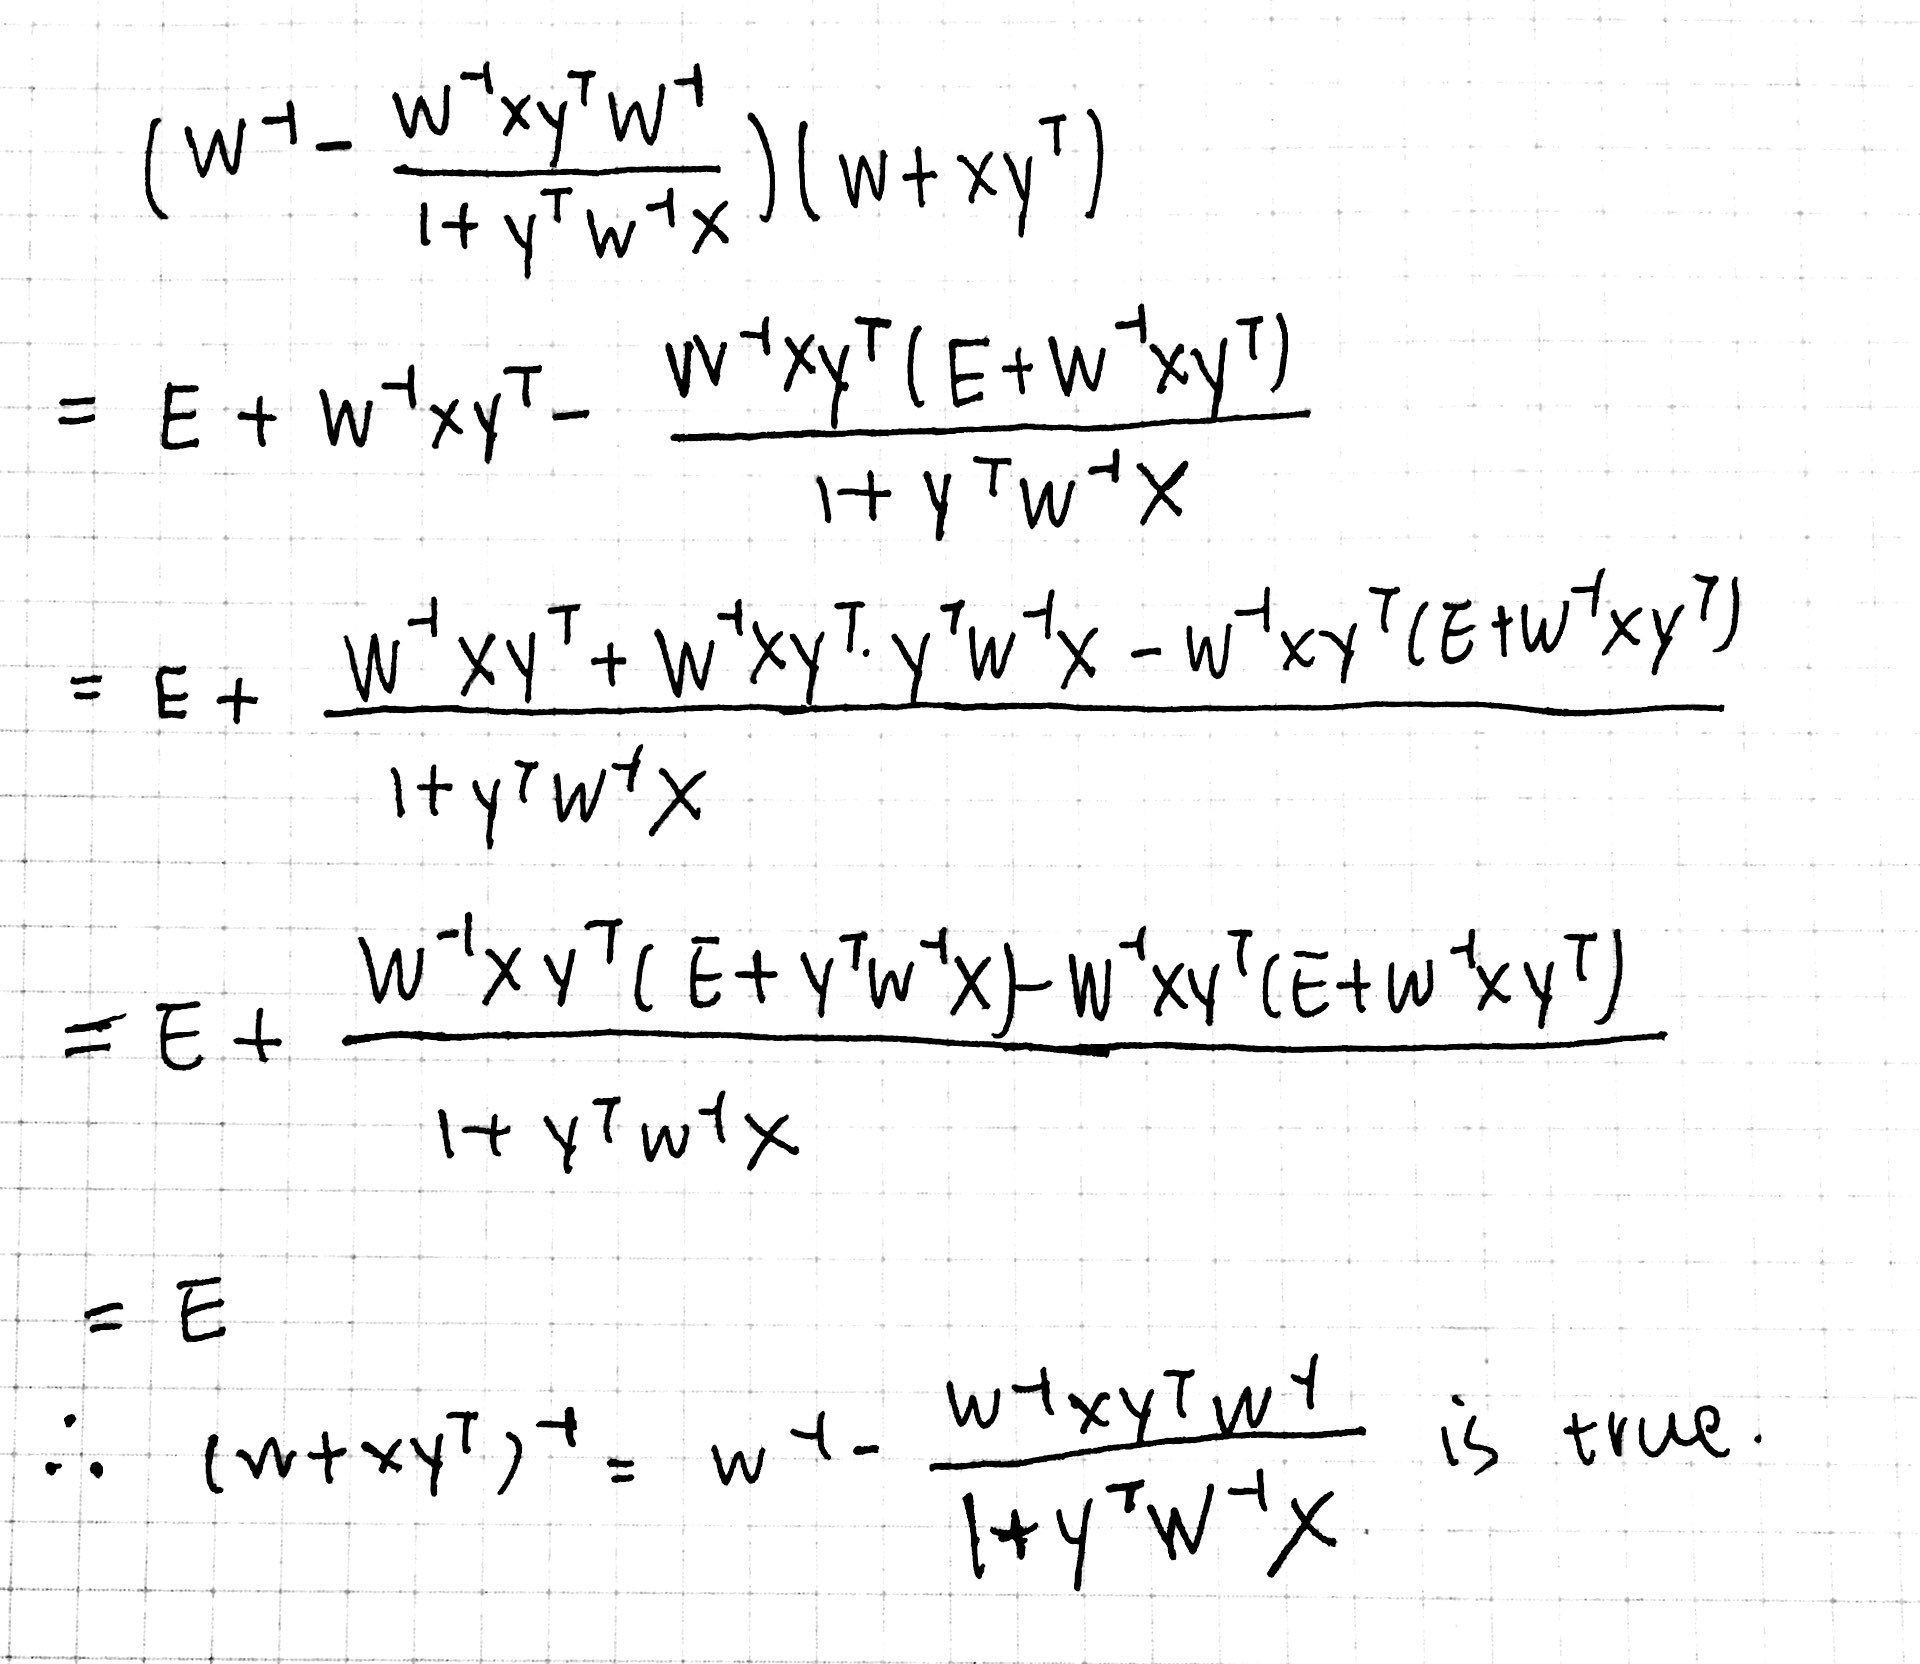 (W⁻¹ - (W⁻¹xyᵀW⁻¹)/(1+yᵀW⁻¹x))(W+xyᵀ)
= E + W⁻¹xyᵀ - (W⁻¹xyᵀ(E+W⁻¹xyᵀ))/(1+yᵀW⁻¹x)
= E + (W⁻¹xyᵀ + W⁻¹xyᵀ·yᵀW⁻¹x - W⁻¹xyᵀ(E+W⁻¹xyᵀ))/(1+yᵀW⁻¹x)
= E + (W⁻¹xyᵀ(E+yᵀW⁻¹x) - W⁻¹xyᵀ(E+W⁻¹xyᵀ))/(1+yᵀW⁻¹x)
= E
∴ (W+xyᵀ)⁻¹ = W⁻¹ - (W⁻¹xyᵀW⁻¹)/(1+yᵀW⁻¹x) is true.